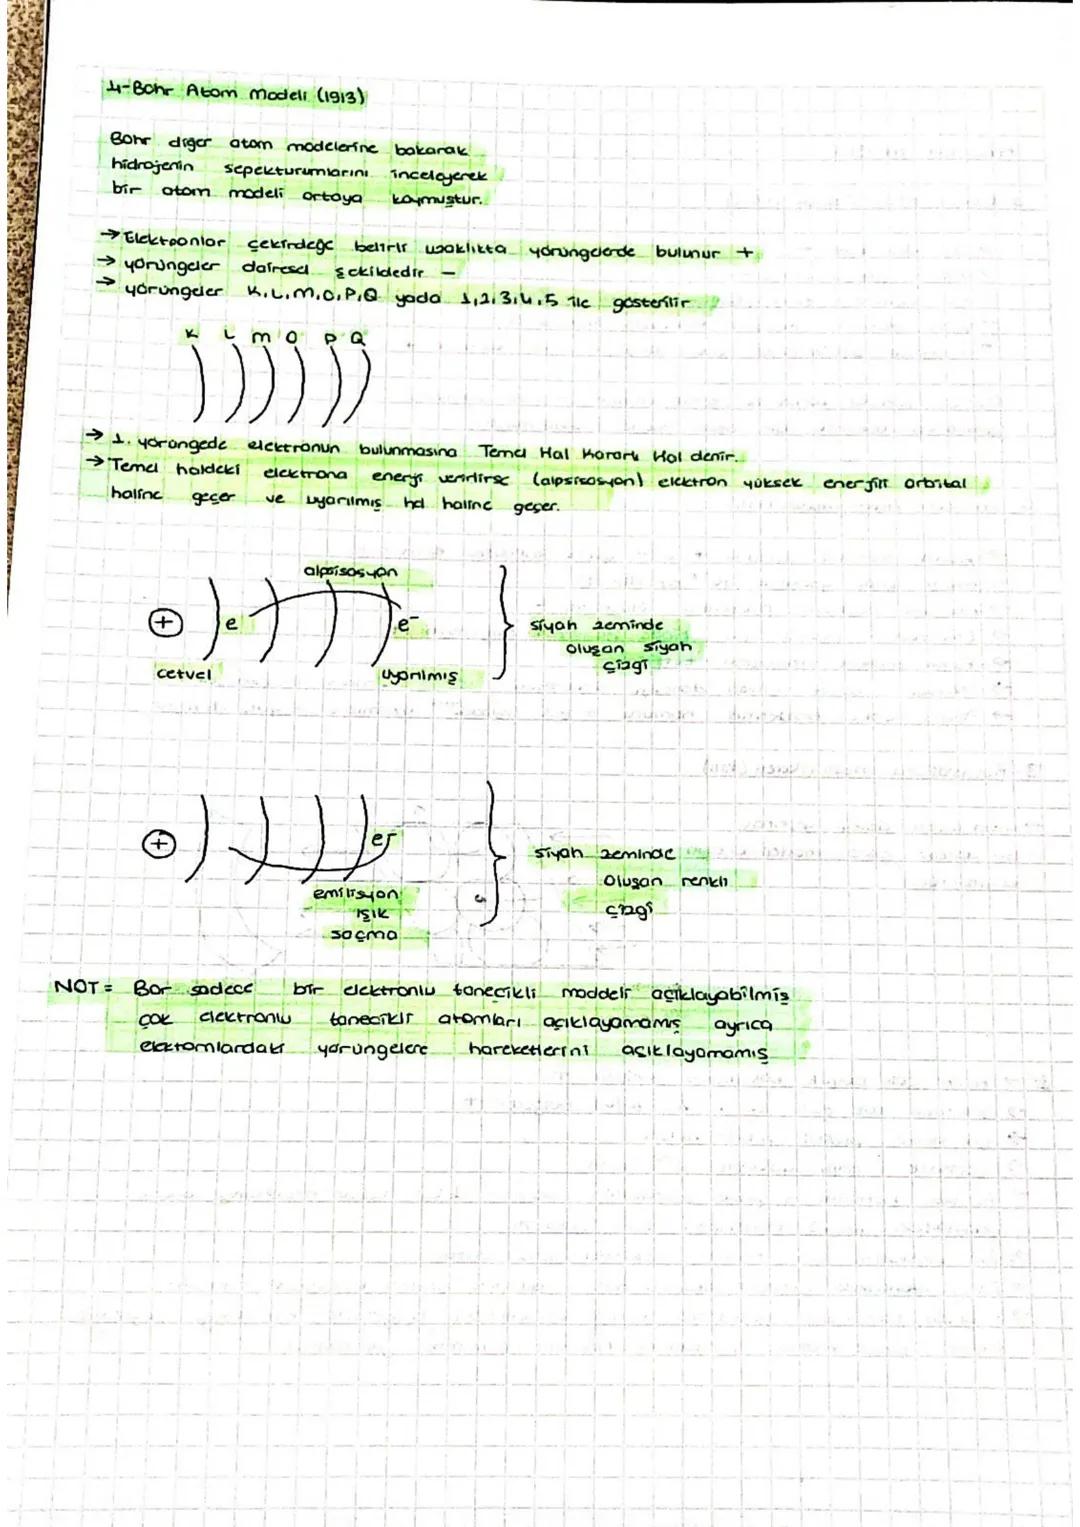 4-Bohr Atom Modeli (1913)
Bohr diğer atom modelerine bakarak
hidrojenin sepekturumlarını inceleyerek
bir atom modeli ortaya koymuştur.
→ Elektronlar çekirdeğe belirli uzaklıkta yörüngelerde bulunur +
→ yörüngeler dairesel şekildedir -
→ yörüngeler K,L,M,O,P,Q yada 1,2,3,4,5 ile gösterilir
K L M O P Q
→ 1. yörüngede elektronun bulunmasına Temel Hal Kararlı Hal denir.
→ Temel haldeki elektrona enerji verirlirse (alpsisosyon) elektron yüksek enerjili orbital
haline geçer ve uyarılmış hal haline geçer.
alpsisosyon
+ e e-
siyah zeminde
oluşan siyah
çizgi
cetvel uyarılmış
+ e-
siyah zeminde
oluşan renkli
çizgi
emilisyon
ışık
saçma
NOT= Bor sadece bir elektronlu taneçikli maddeli açıklayabilmiş
çok elektronlu taneciklir atomları açıklayamamış ayrıca
elektronlardaki yörüngelere hareketlerini açıklayamamış